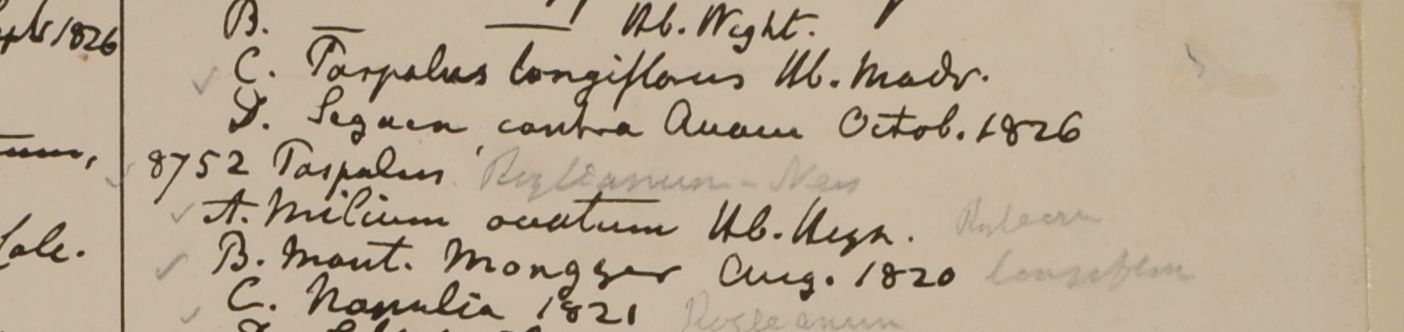 1826
B. — — Hb. Wight.
C. Paspalus longiflorus Hb. Madr.
D. Segaen contra Avam Octob. 1826
8752 Paspalus Royleanum - Nees
A. Milium ovatum Hb. Heyn.
B. Mont. Mongger Aug. 1820
C. Napalia 1821 Royleanum